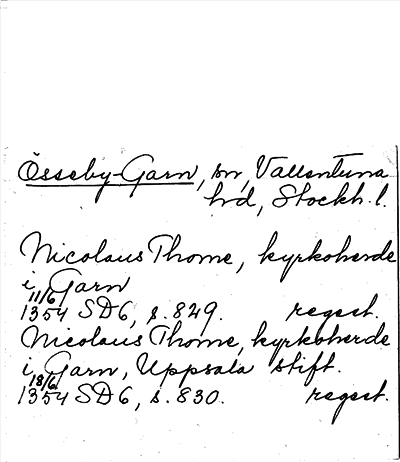 Össeby-Garn, sn, Vallentuna
hrd, Stockh. l.
Nicolaus Thome, kyrkoherde
i Garn
11/6
1354 SD6, s. 829. regest.
Nicolaus Thome, kyrkoherde
i Garn, Uppsala stift.
18/6
1354 SD6, s. 830. regest.